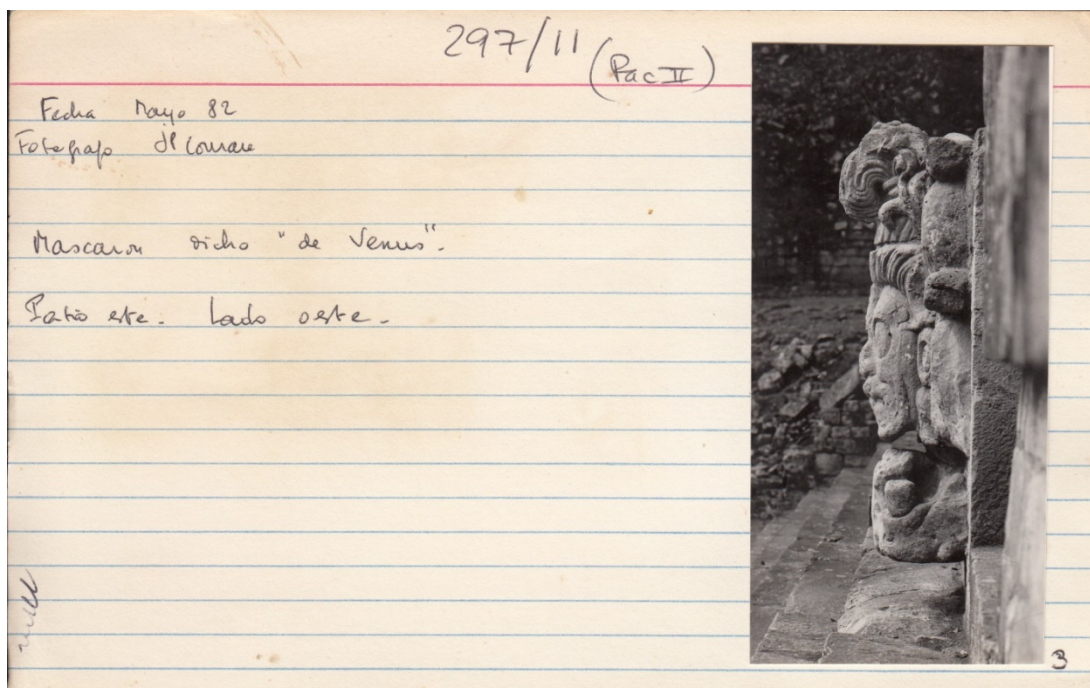 297/11
(Pac II)
Fecha Mayo 82
Fotografo
Mascaron dicho "de Venus".
Patio este. Lado oeste.
3